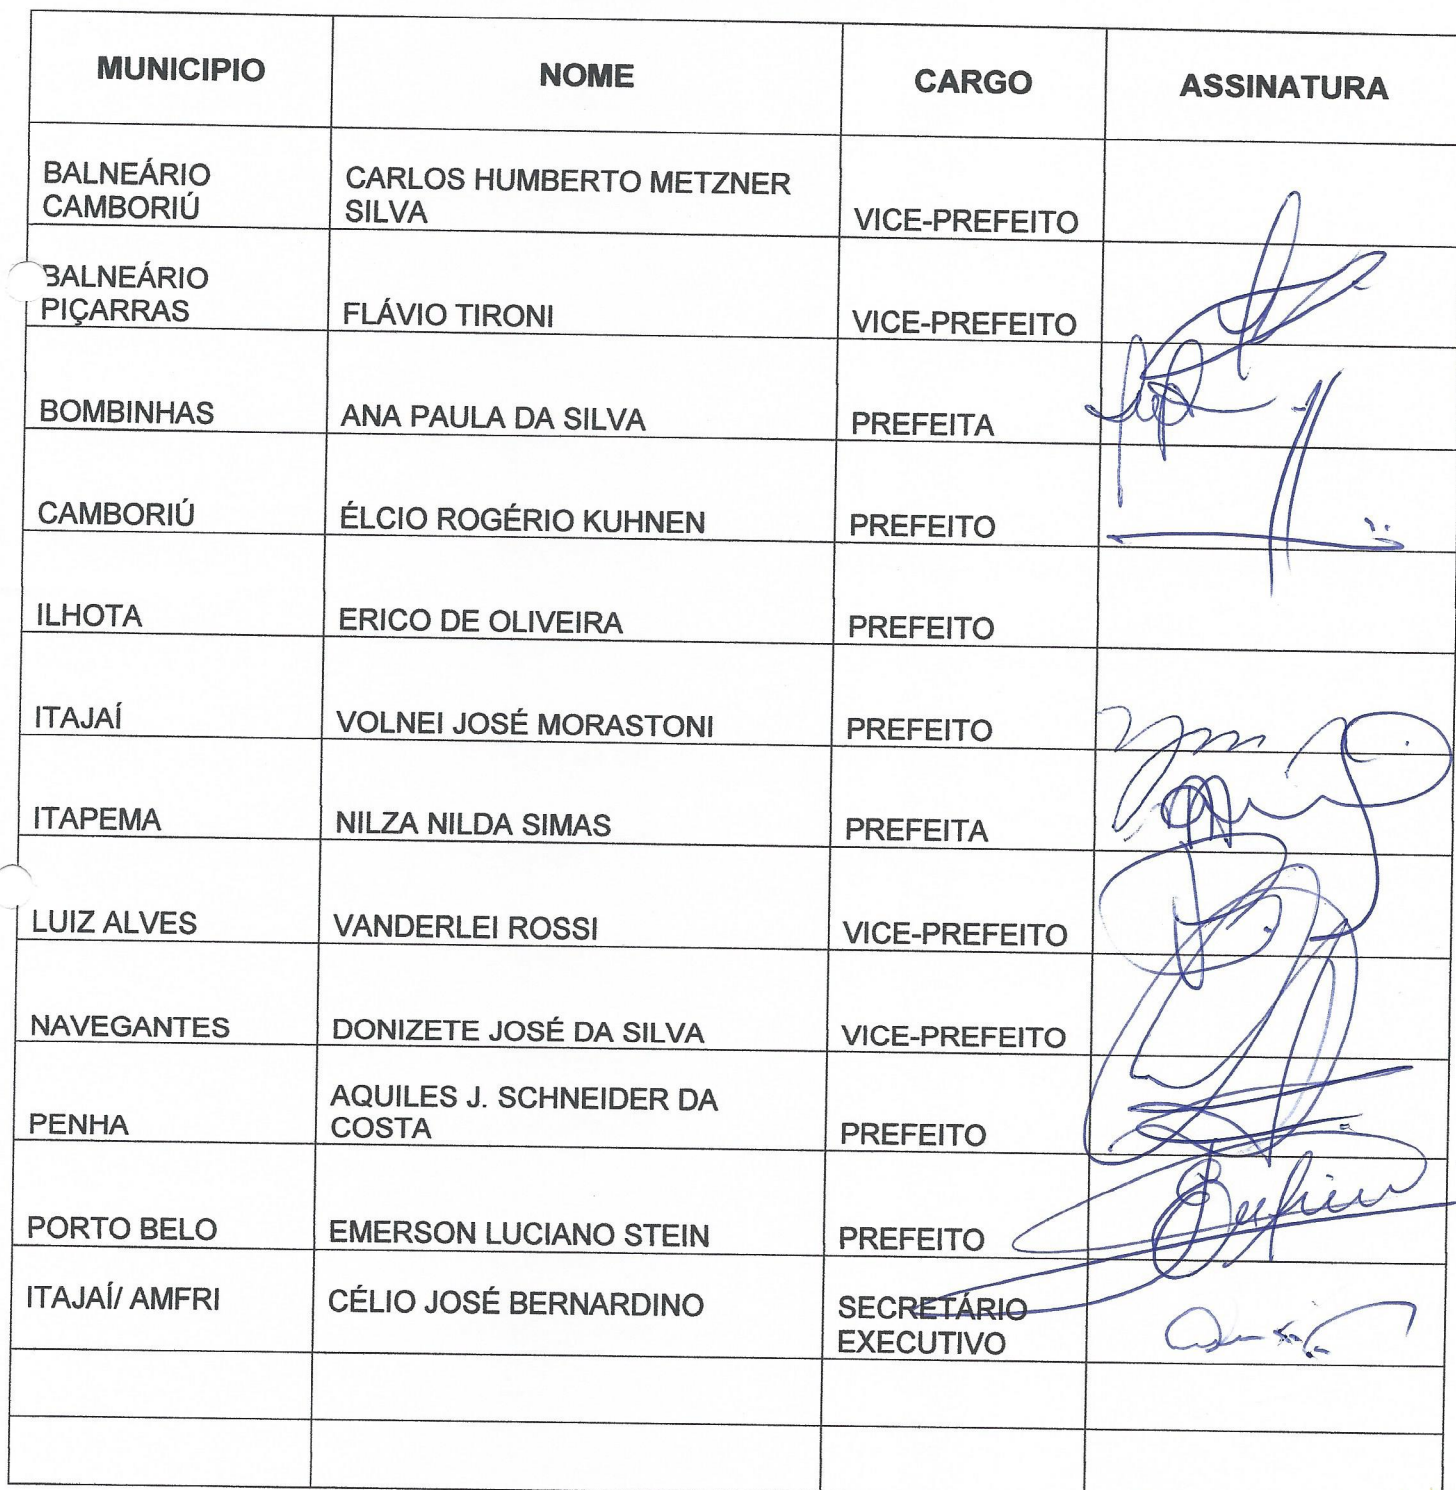 MUNICIPIO NOME CARGO ASSINATURA
BALNEÁRIO
CAMBORIÚ
CARLOS HUMBERTO METZNER
SILVA
VICE-PREFEITO
BALNEÁRIO
PIÇARRAS
FLÁVIO TIRONI
VICE-PREFEITO
BOMBINHAS ANA PAULA DA SILVA PREFEITA
CAMBORIÚ ÉLCIO ROGÉRIO KUHNEN PREFEITO
ILHOTA ERICO DE OLIVEIRA PREFEITO
ITAJAÍ VOLNEI JOSÉ MORASTONI PREFEITO
ITAPEMA NILZA NILDA SIMAS PREFEITA
LUIZ ALVES VANDERLEI ROSSI VICE-PREFEITO
NAVEGANTES DONIZETE JOSÉ DA SILVA VICE-PREFEITO
PENHA
AQUILES J. SCHNEIDER DA
COSTA
PREFEITO
PORTO BELO EMERSON LUCIANO STEIN PREFEITO
ITAJAÍ/ AMFRI CÉLIO JOSÉ BERNARDINO
SECRETÁRIO
EXECUTIVO